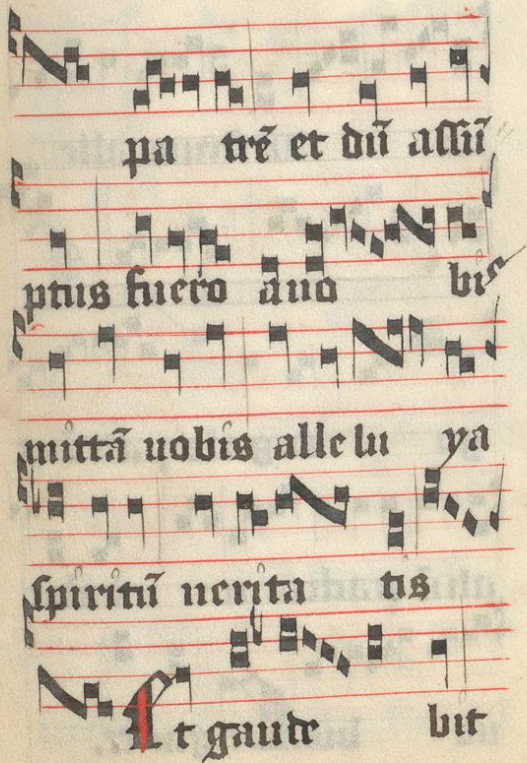 pa trē et dū assū
ptus fuero a uo bis
mittā uobis alle lu ya
spiritū uerita tis
Et gaude bit